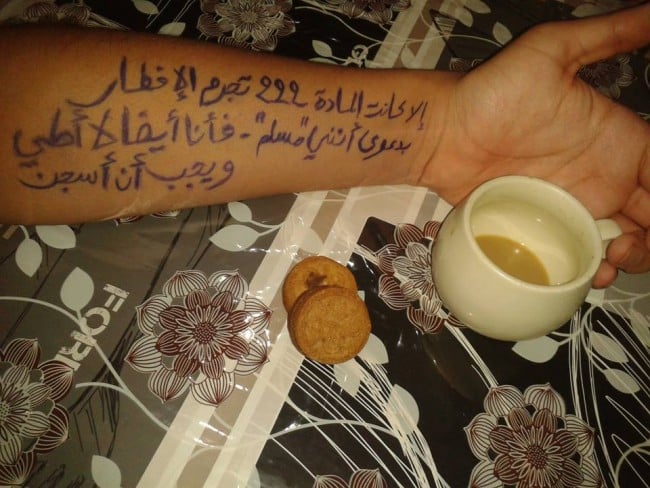 إلا كانت المادة 222 تجرم الإفطار
بدعوى أنني "مسلم" - فأنا أيضا لا أصلي
ويجب أن أسجن